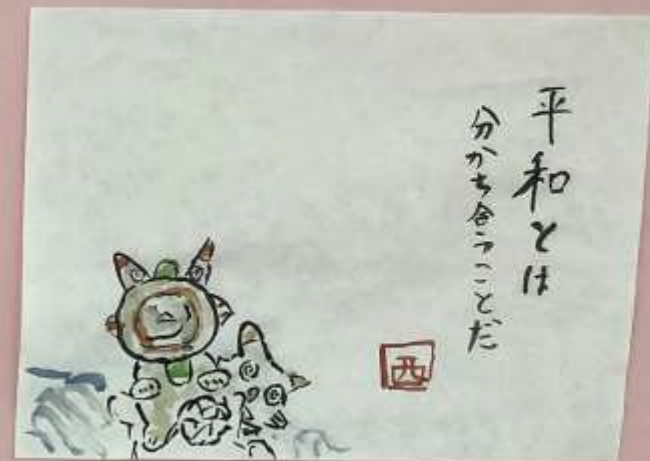 平和とは
分かち合うことだ
西